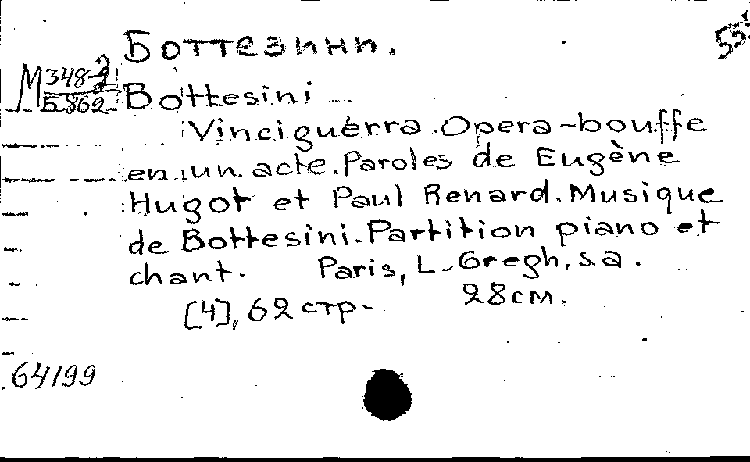 Боттезини.
М 348-2
Б 862
Bottesini
Vinciguerra. Opera-bouffe
en un acte. Paroles de Eugène
Hugot et Paul Renard. Musique
de Bottesini. Partition piano et
chant. Paris, L. Gregh, s.a.
[4], 62 стр. 28 см.
64199